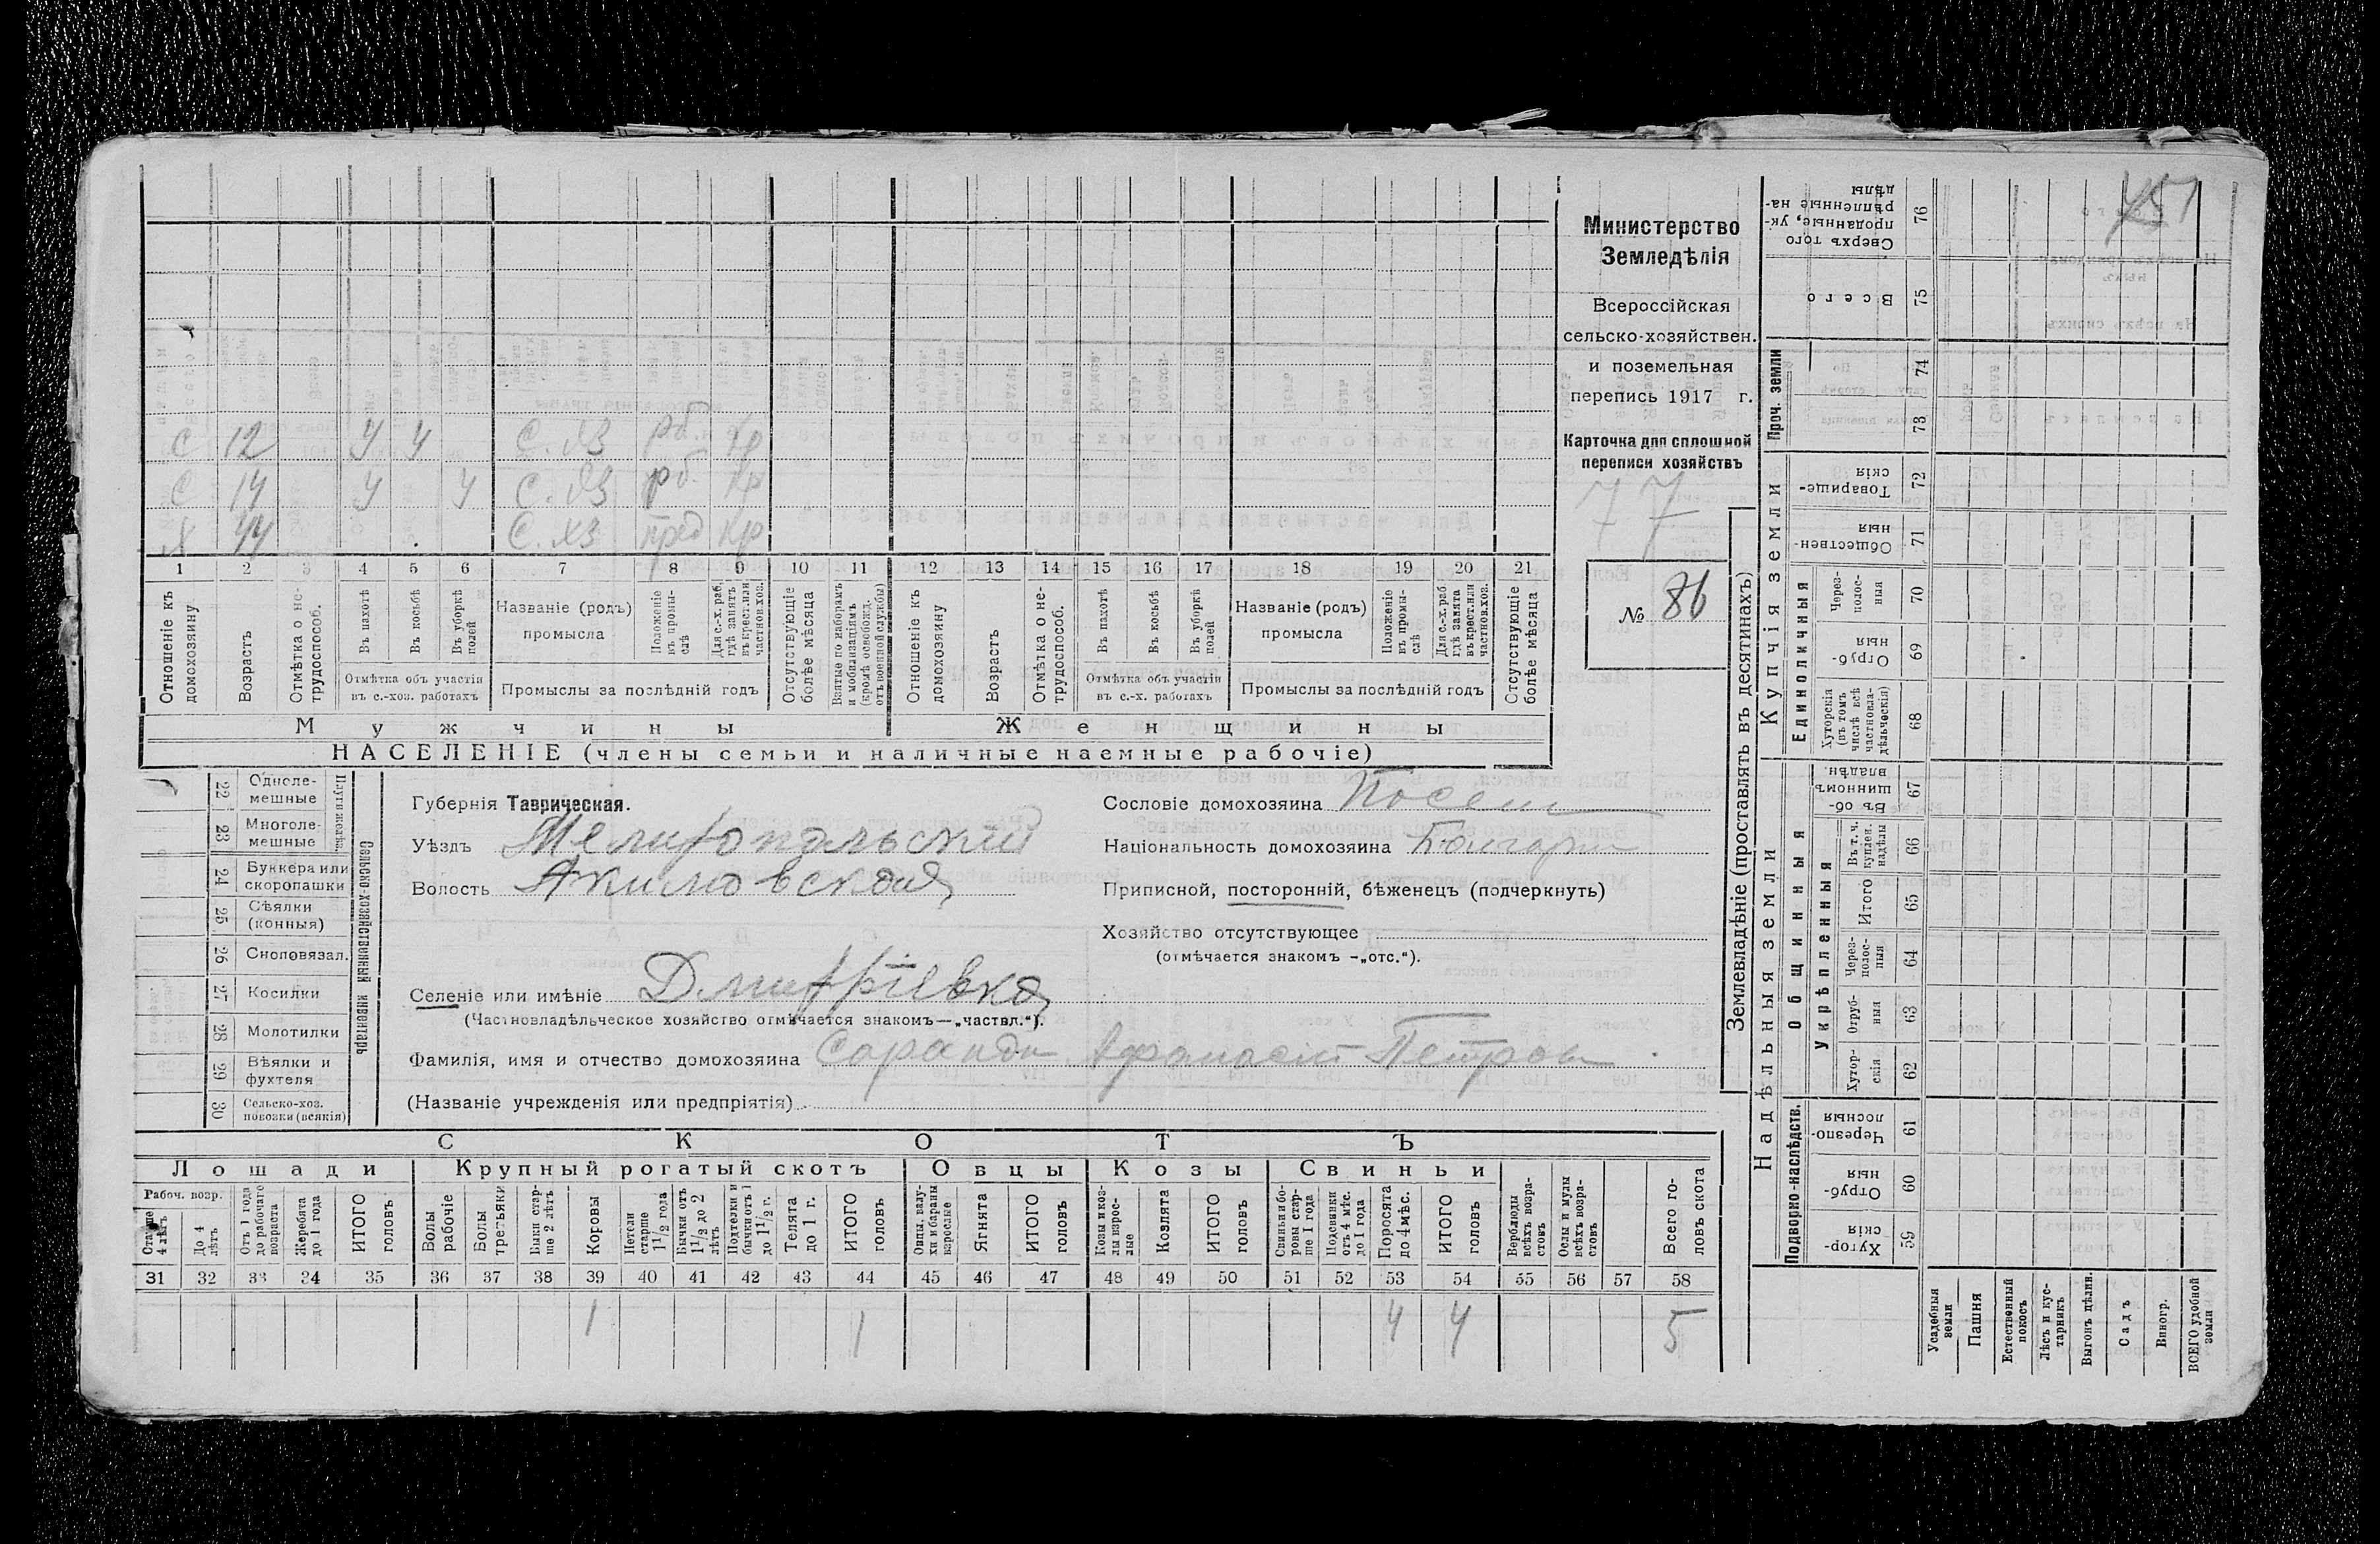 451
С 12 У У С. хз рб. кр
С 14 У У С. хз рб. кр
Х 44 С. хз пред кр
1 2 3 4 5 6 7 8 9 10 11 12 13 14 15 16 17 18 19 20 21
Отношеніе къ домохозяину
Возрастъ
Отмѣтка о нетрудоспособ.
Въ пахотѣ
Въ косьбѣ
Въ уборкѣ полей
Отмѣтка объ участіи
въ с.-хоз. работахъ
Названіе (родъ)
промысла
Положеніе въ промыслѣ
Для с.-х. раб. гдѣ занятъ въ крест. или частнов. хоз.
Промыслы за послѣдній годъ
Отсутствующіе болѣе мѣсяца
Взятые по наборамъ и мобилизаціямъ (кромѣ освобожд. отъ военной службы)
Отношеніе къ домохозяину
Возрастъ
Отмѣтка о нетрудоспособ.
Въ пахотѣ
Въ косьбѣ
Въ уборкѣ полей
Отмѣтка объ участіи
въ с.-х. работахъ
Названіе (родъ)
промысла
Положеніе въ промыслѣ
Для с.-х. раб. гдѣ занята въ крест. или частнов. хоз.
Промыслы за послѣдній годъ
Отсутствующіе болѣе мѣсяца
Мужчины Женщины
НАСЕЛЕНІЕ (члены семьи и наличные наемные рабочіе)
Министерство
Земледѣлія
Всероссійская
сельско-хозяйствен.
и поземельная
перепись 1917 г.
Карточка для сплошной
переписи хозяйствъ
77
№ 86
22 Одноле-
мешные
23 Многоле-
мешные
24 Буккера или
скоропашки
25 Сѣялки
(конныя)
26 Сноповязал.
27 Косилки
28 Молотилки
29 Вѣялки и
фухтеля
30 Сельско-хоз.
повозки (всякія)
Сельско-хозяйственный инвентарь
Губернія Таврическая.
Уѣздъ Мелитопальскій
Волость Акимовская
Селеніе или имѣніе Дмитріевка
(Частновладѣльческое хозяйство отмѣчается знакомъ—„частвл.“).
Фамилія, имя и отчество домохозяина Саранди Афанасій Петров
(Названіе учрежденія или предпріятія)
Сословіе домохозяина Поселян
Національность домохозяина Болгарин
Приписной, посторонній, бѣженецъ (подчеркнуть)
Хозяйство отсутствующее
(отмѣчается знакомъ -„отс.“).
СКОТЪ
Лошади Крупный рогатый скотъ Овцы Козы Свиньи
Рабоч. возр.
Старше 4 лѣтъ
До 4 лѣтъ
Отъ 1 года до рабочаго возраста
Жеребята до 1 года
ИТОГО головъ
Волы рабочіе
Волы третьяки
Быки старше 2 лѣтъ
Коровы
Нетели старше 1 1/2 года
Бычки отъ 1 1/2 до 2 лѣтъ
Подтелки и бычки отъ 1 до 1 1/2 г.
Телята до 1 г.
ИТОГО головъ
Овцы, валухи и бараны взрослые
Ягнята
ИТОГО головъ
Козы и козлы взрослые
Козлята
ИТОГО головъ
Свиньи и боровы старше 1 года
Подсвинки отъ 4 мѣс. до 1 года
Поросята до 4 мѣс.
ИТОГО головъ
Верблюды всѣхъ возрастовъ
Ослы и мулы всѣхъ возрастовъ
Всего головъ скота
31 32 33 34 35 36 37 38 39 40 41 42 43 44 45 46 47 48 49 50 51 52 53 54 55 56 57 58
1 1 4 4 5
Землевладѣніе (проставлять въ десятинахъ)
Надѣльныя земли Купчія земли Проч. земли
Подворно-наслѣдств. Общинныя Единоличныя
Укрѣпленныя
Сверхъ того проданные, укрѣпленные надѣлы 76
Всего 75
74
73
Товарищескія 72
Общественныя 71
Черезполосныя 70
Отрубныя 69
Хуторскія (въ томъ числѣ всѣ частновладѣльческія) 68
Въ общинномъ владѣн. 67
Въ т. ч. куплен. надѣлы 66
Итого 65
Черезполосныя 64
Отрубныя 63
Хуторскія 62
Черезполосныя 61
Отрубныя 60
Хуторскія 59
Усадебныя земли
Пашня
Естественный покосъ
Лѣсъ и кустарникъ
Выгонъ цѣлин.
Садъ
Виногр.
ВСЕГО удобной земли